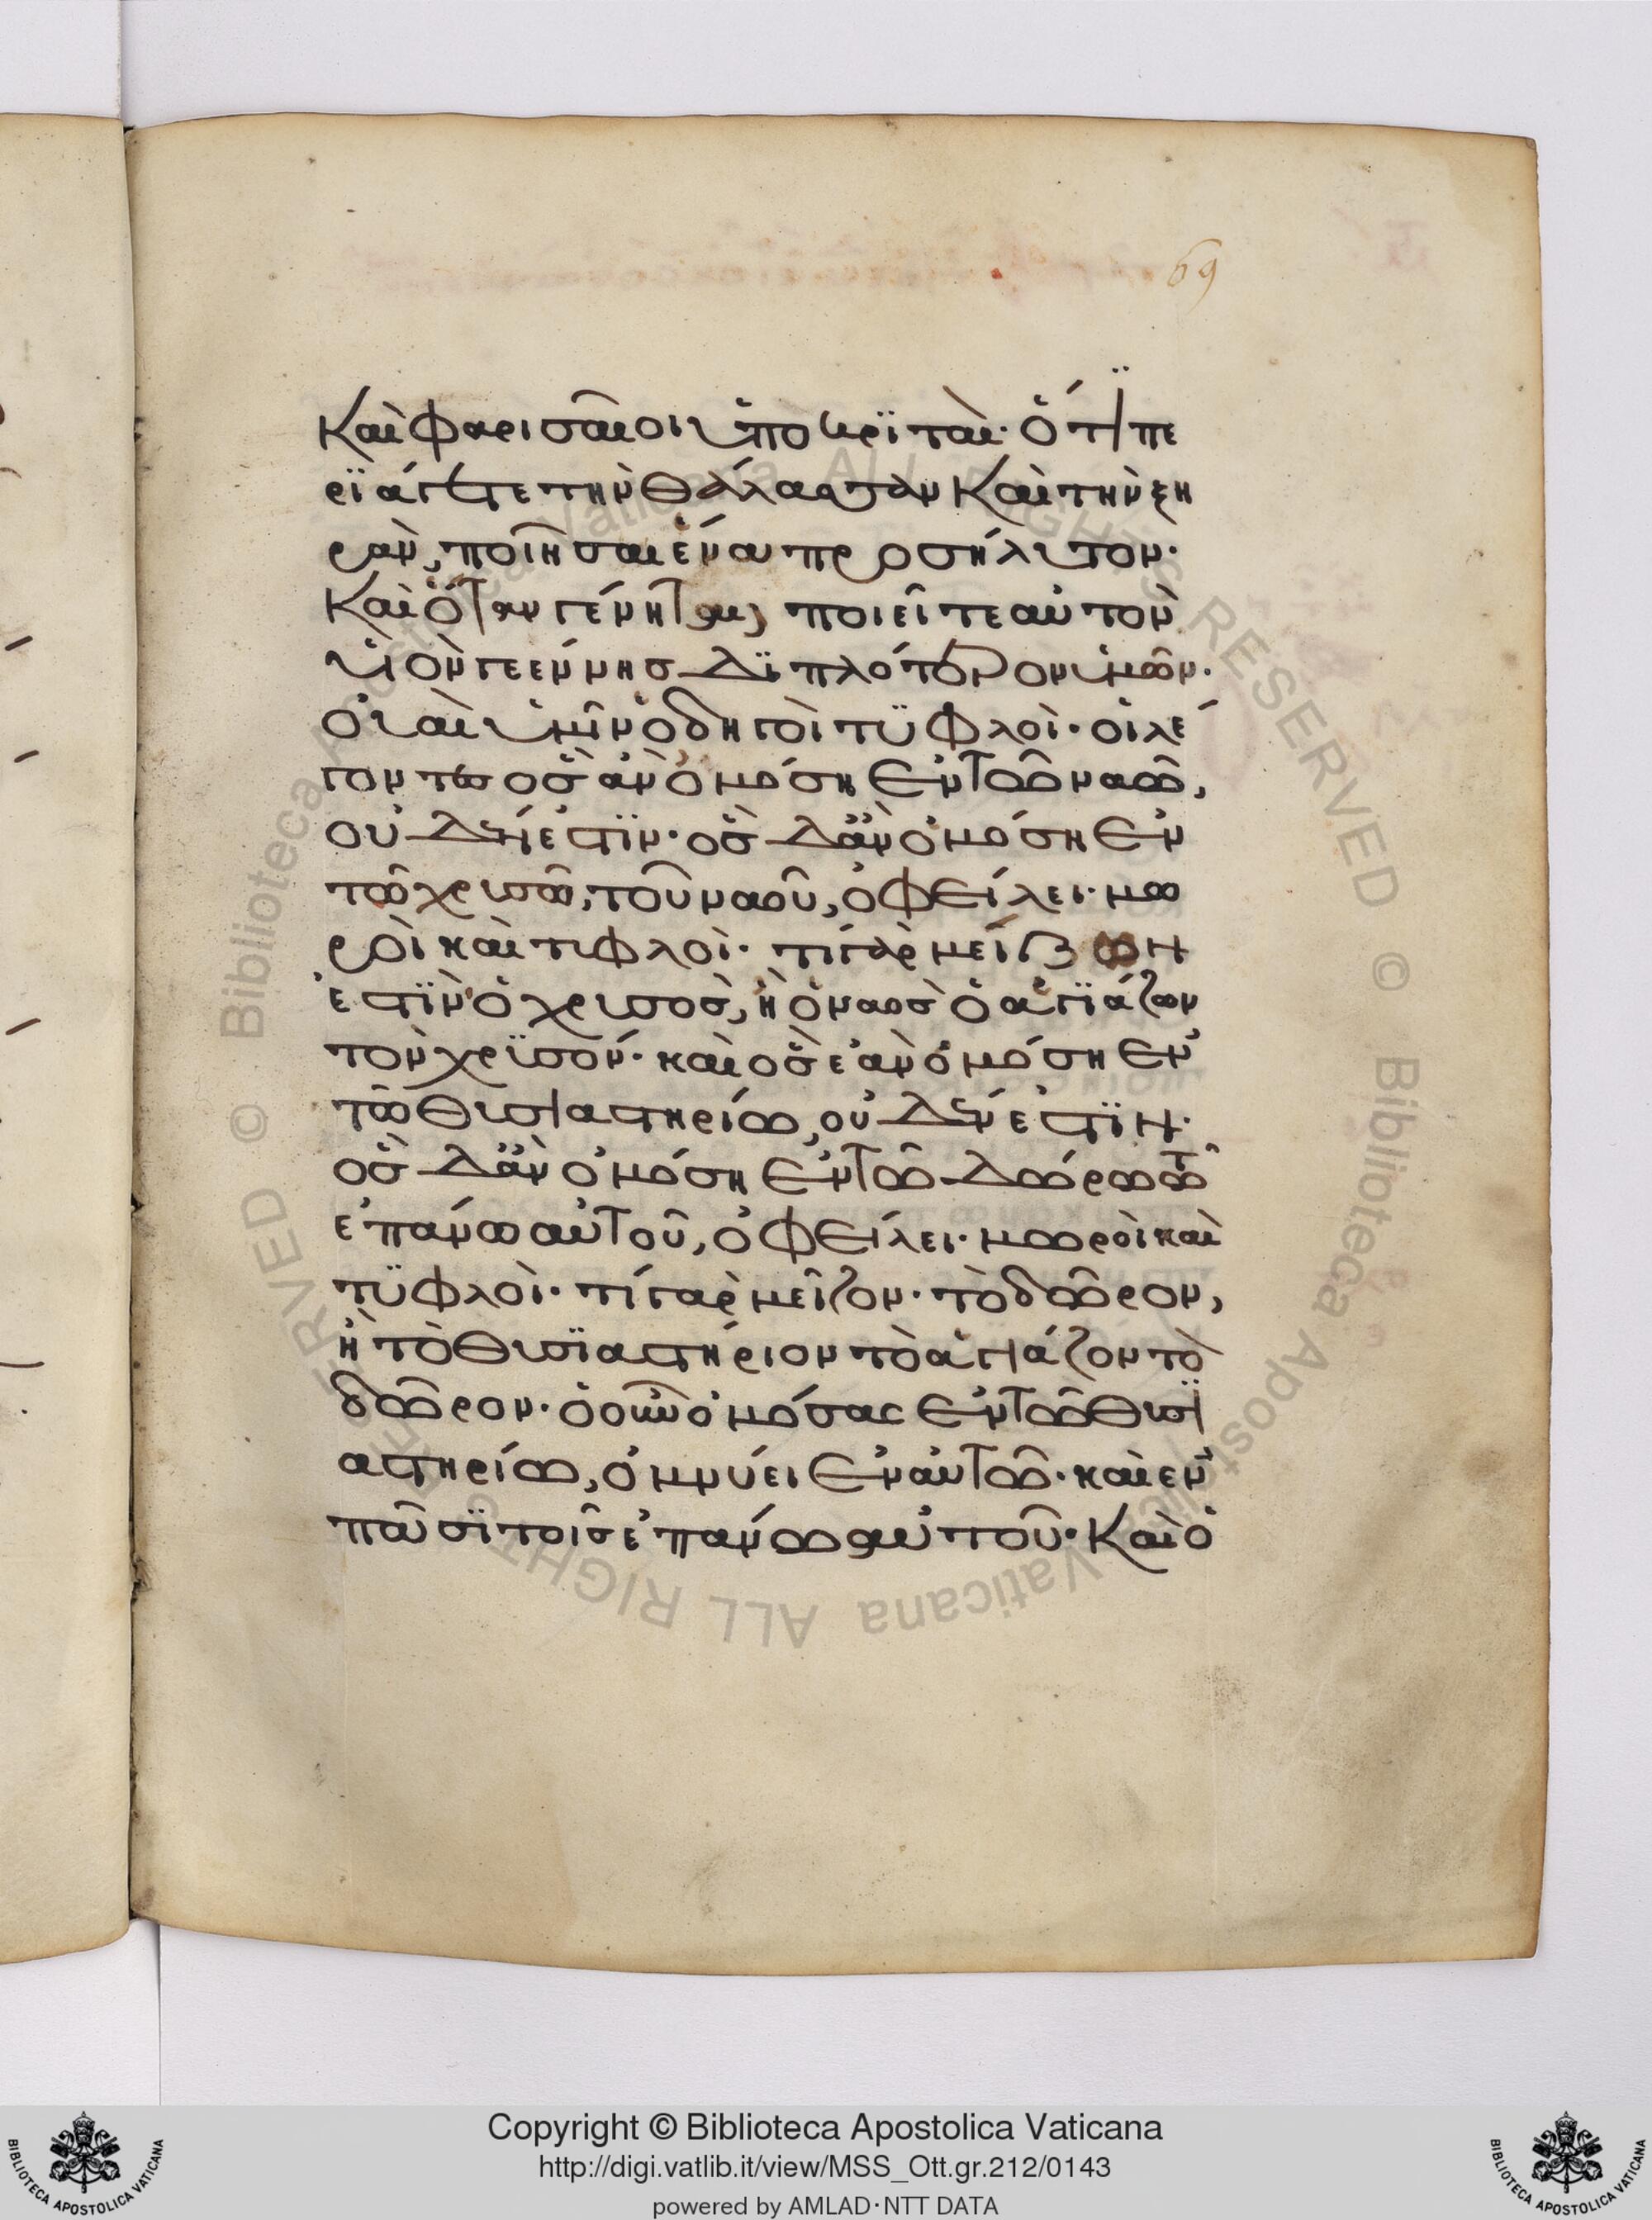 69
Καὶ φαρισαῖοι ὑποκρϊταὶ· ὅτϊ πε
ρϊάγετε τὴν θάλασσαν Καὶ τὴν ξη
ρὰν, ποιῆσαι ἕνα προσήλυτον·
Καὶ ὅταν γένηται, ποιεῖτε αὐτὸν
υἱὸν γεέννησ Δϊπλότερον ὑμῶν·
οὐαὶ ὑμῖν ὁδηγοὶ τϋφλοὶ· οἱ λέ
γοντες ὃσ ἂν ὀμόση ἐν τῶ ναῶ,
οὐδέν ἐστϊν· ὃσ Δἂν ὀμόση ἐν
τῶ χρυσῶ, τοῦ ναοῦ, ὀφείλει· μω
ροὶ καὶ τυφλοὶ· τί γὰρ μείζων
ἐστϊν ὁ χρυσοσ, ἢ ὁ ναοσ ὁ ἁγϊάζων
τὸν χρϋσόν· καὶ ὃσ ἐὰν ὀμόση ἐν
τῶ θυσιαστηρίω, οὐδέν ἐστϊν·
ὃσ Δἂν ὀμόση ἐν τῶ Δώρω τῶ
ἐπάνω αὐτοῦ, ὀφείλει· μωροὶ καὶ
τϋφλοὶ· τί γὰρ μεῖζον· τὸ δῶρον,
ἢ τὸ θυσϊαστήριον τὸ ἁγιάζον τὸ
δῶρον· ὁ οὖν ὀμόσας ἐν τῶ θυσϊ
αστηρίω, ὀμνύει ἐν αὐτῶ· καὶ ἐν
πᾶσϊ τοῖσ ἐπάνω αὐτοῦ· Καὶ ὁ
© Biblioteca Apostolica Vaticana ALL RIGHTS RESERVED © Biblioteca Apostolica Vaticana ALL RIGHTS RESERVED
Copyright © Biblioteca Apostolica Vaticana
http://digi.vatlib.it/view/MSS_Ott.gr.212/0143
powered by AMLAD·NTT DATA
BIBLIOTECA APOSTOLICA VATICANA
BIBLIOTECA APOSTOLICA VATICANA